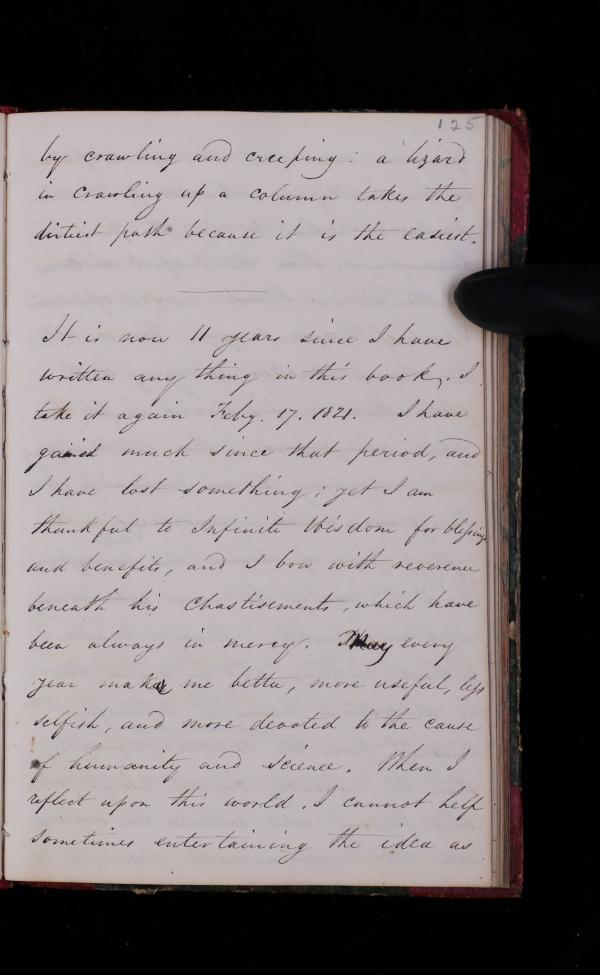 125
by crawling and creeping : a lizard
in crawling up a column takes the
dirtiest path because it is the easiest.
It is now 11 years since I have
written any thing in this book. I
take it again Feby. 17. 1821. I have
gained much since that period, and
I have lost something; yet I am
thankful to Infinite Wisdom for blessings
and benefits, and I bow with reverence
beneath his chastisements, which have
been always in mercy. May every
year make me better, more useful, less
selfish, and more devoted to the cause
of humanity and science. When I
reflect upon this world, I cannot help
sometimes entertaining the idea as